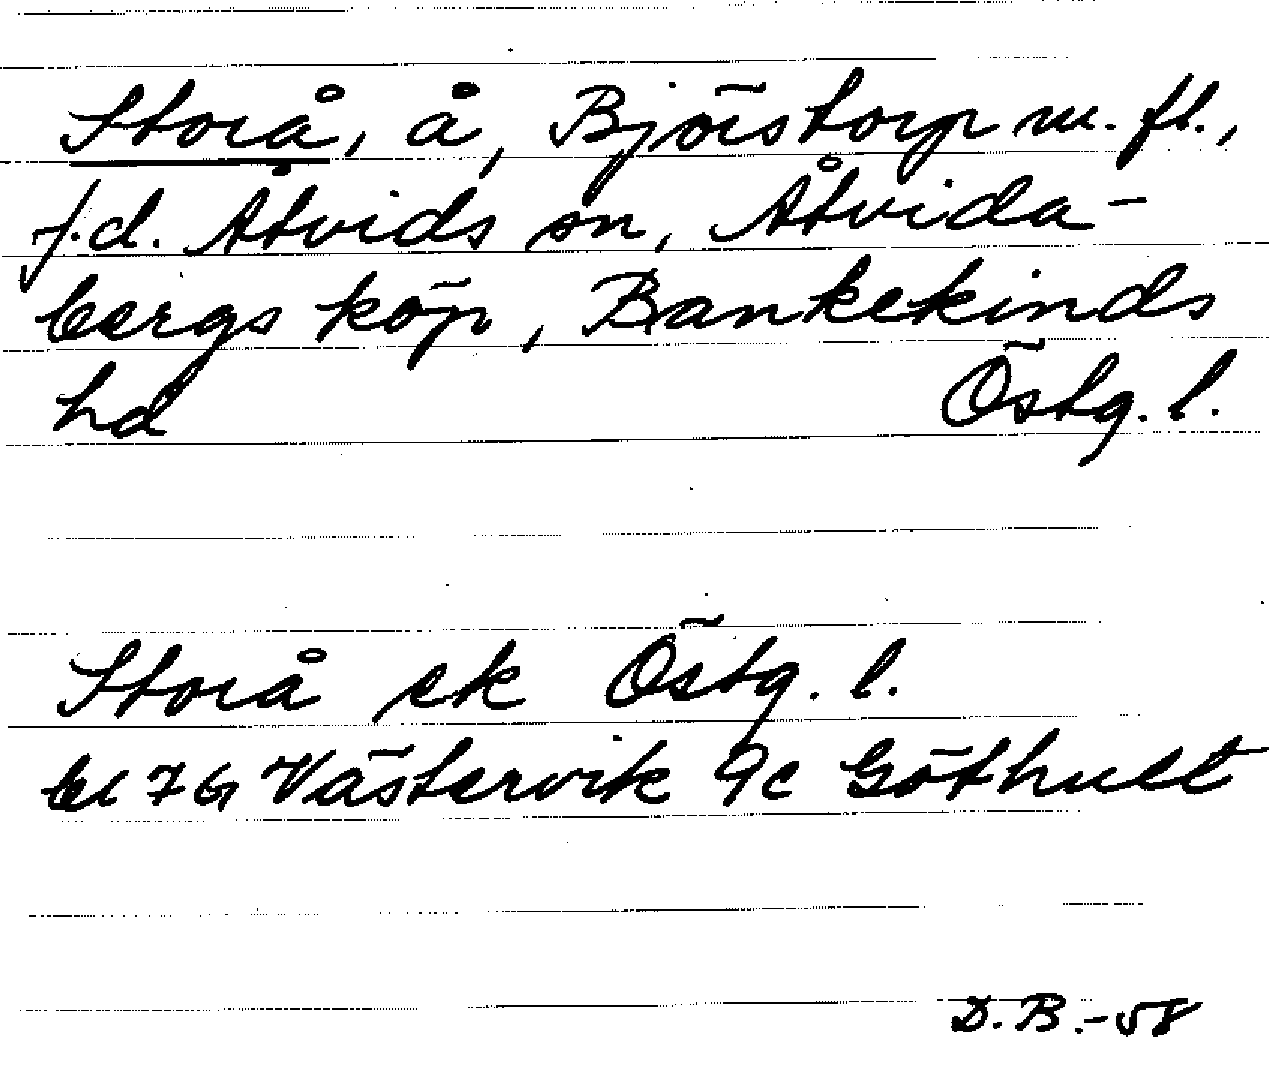 Storå, å, Björstorp m. fl.,
f.d. Åtvids sn, Åtvida-
bergs köp, Bankekinds
hd Östg. l.
Storå ek Östg. l.
bl 7G Västervik 9c Göthult
D. B. -58